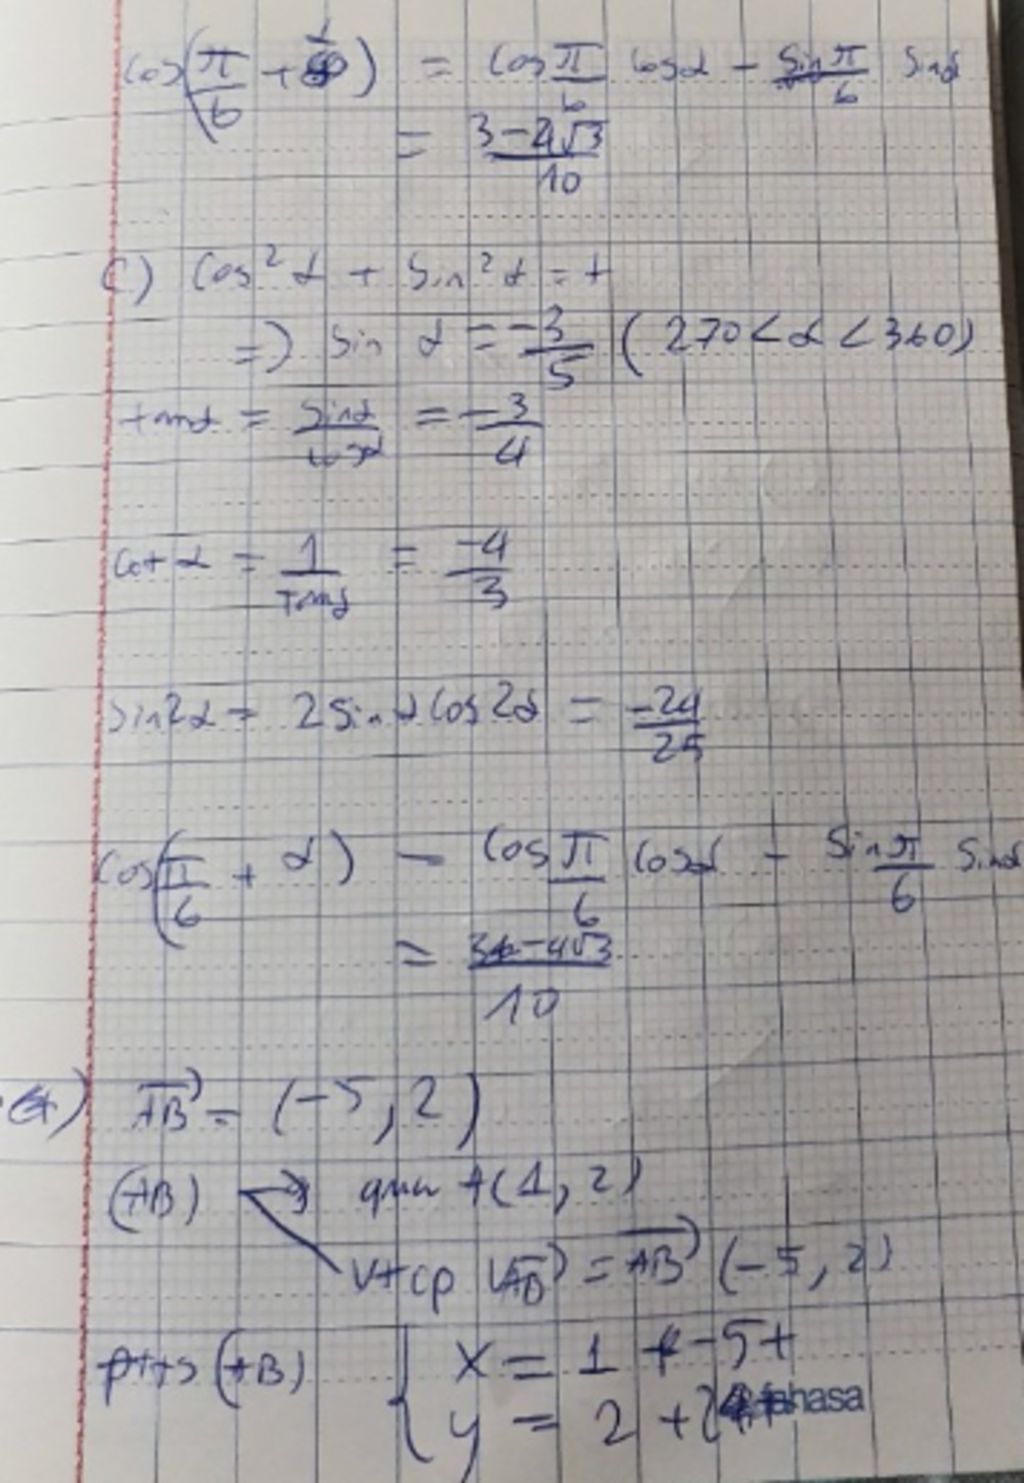 cos(π/6 + α) = cos π/6 cosα - sin π/6 sinα
= 3-4√3/10
C) cos²α + sin²α = 1
=) sin α = -3/5 (270<α<360)
tanα = sinα/cosα = -3/4
cot α = 1/tanα = -4/3
sin2α = 2sinαcos2α = -24/25
cos(π/6 + α) = cos π/6 cosα - sin π/6 sinα
= 3-4√3/10
AB = (-5, 2)
(AB) qua A(1, 2)
vtcp AB = AB (-5, 2)
ptts (AB) { x = 1 -5t
y = 2 +2t